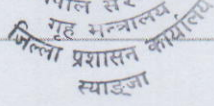 गृह मन्त्रालय
जिल्ला प्रशासन कार्यालय
स्याङ्जा